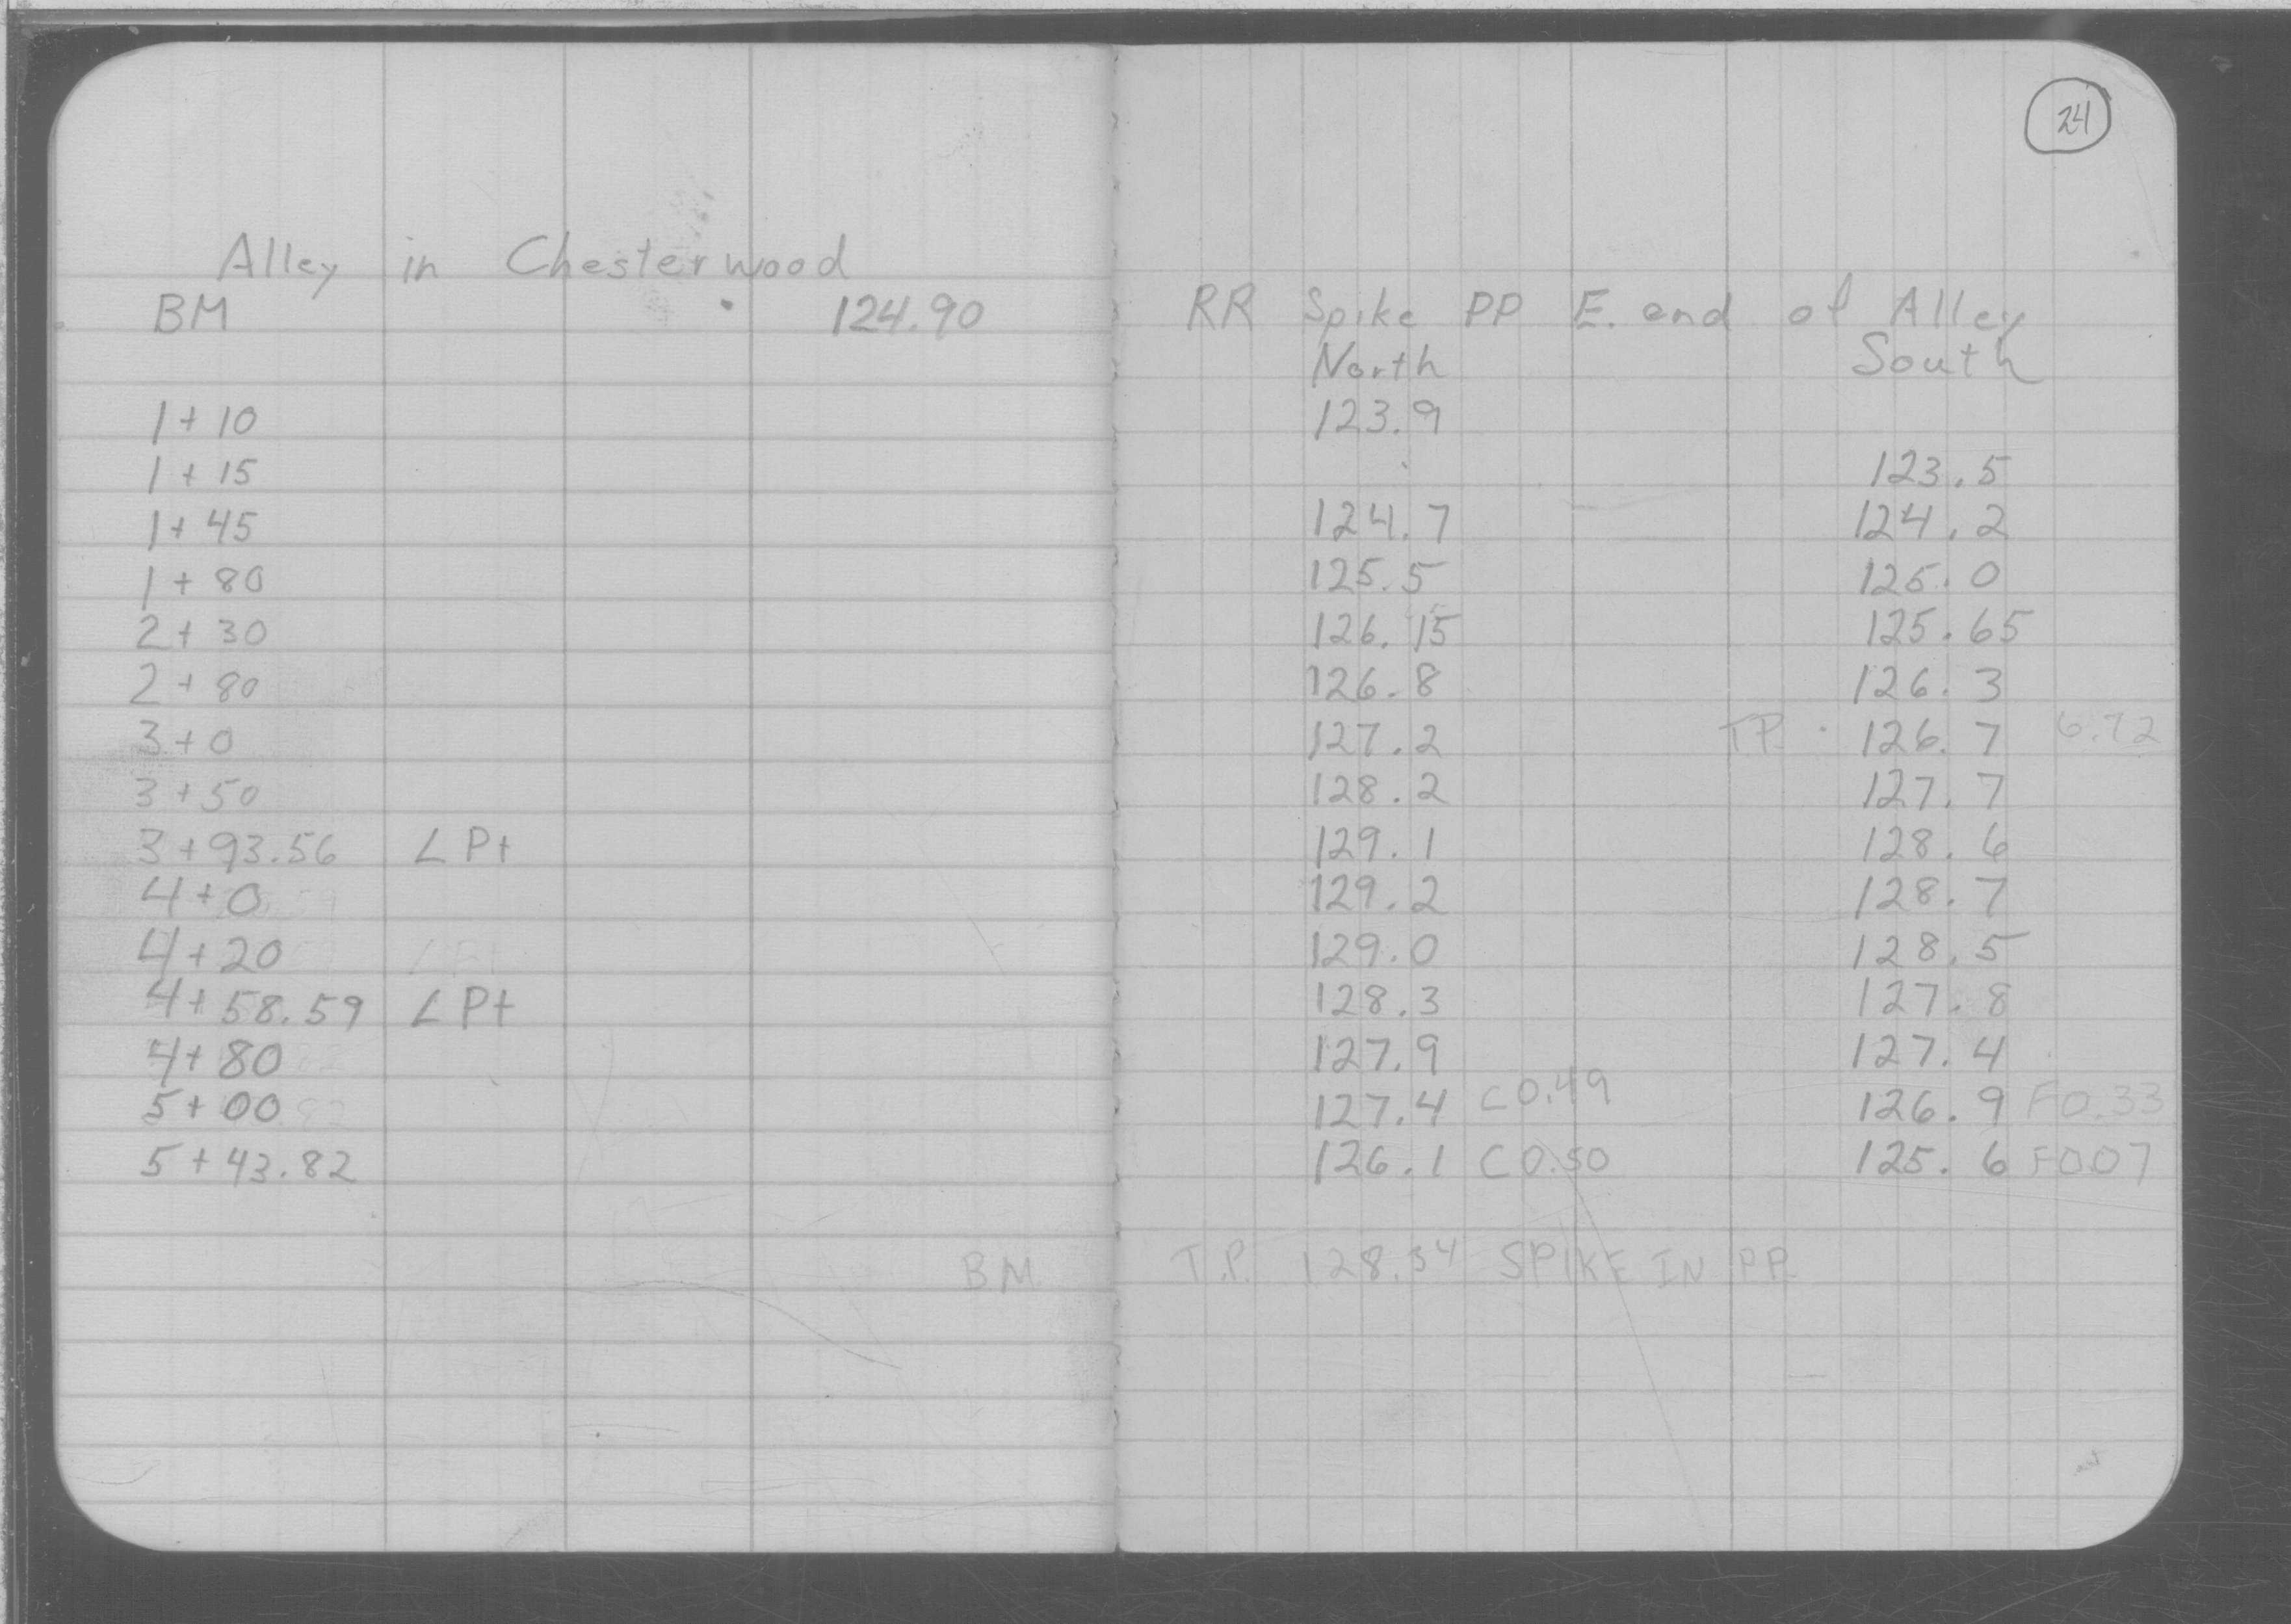 24
Alley in Chesterwood
BM 124.90 RR Spike PP E. end of Alley
North South
1+10 123.9
1+15 123.5
1+45 124.7 124.2
1+80 125.5 125.0
2+30 126.15 125.65
2+80 126.8 126.3
3+0 127.2 T.P. 126.7 6.72
3+50 128.2 127.7
3+93.56 ∠ Pt 129.1 128.6
4+0 129.2 128.7
4+20 129.0 128.5
4+58.59 ∠ Pt 128.3 127.8
4+80 127.9 127.4
5+00 127.4 C0.49 126.9 F0.33
5+43.82 126.1 C0.50 125.6 F0.07
BM T.P. 128.34 SPIKE IN PP.